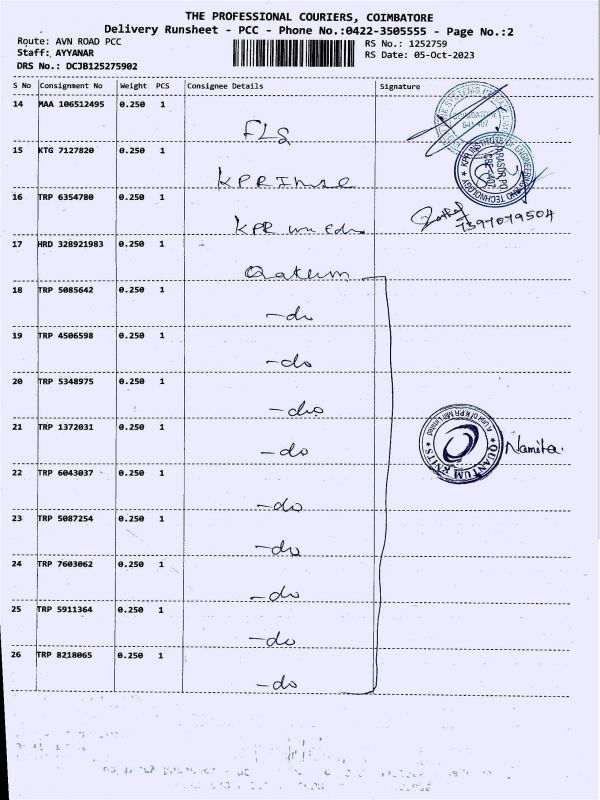 THE PROFESSIONAL COURIERS, COIMBATORE
Delivery Runsheet - PCC - Phone No.:0422-3505555 - Page No.:2
Route: AVN ROAD PCC
Staff: AYYANAR
DRS No.: DCJB125275902
RS No.: 1252759
RS Date: 05-Oct-2023
S No Consignment No Weight PCS Consignee Details Signature
14 MAA 106512495 0.250 1 FLS
15 KTG 7127820 0.250 1
16 TRP 6354780 0.250 1 KPR
7397079504
17 HRD 328921983 0.250 1
18 TRP 5085642 0.250 1 -do
19 TRP 4506598 0.250 1 -do
20 TRP 5348975 0.250 1 -do
21 TRP 1372031 0.250 1 -do
A unit of KPR Mill Limited
QUANTUM KNITS
Namita
22 TRP 6043037 0.250 1 -do
23 TRP 5087254 0.250 1 -do
24 TRP 7603062 0.250 1 -do
25 TRP 5911364 0.250 1 -do
26 TRP 8218065 0.250 1 -do